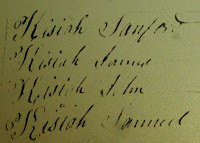 Kisiah Sanford
Kisiah James
Kisiah John
Kisiah Samuel